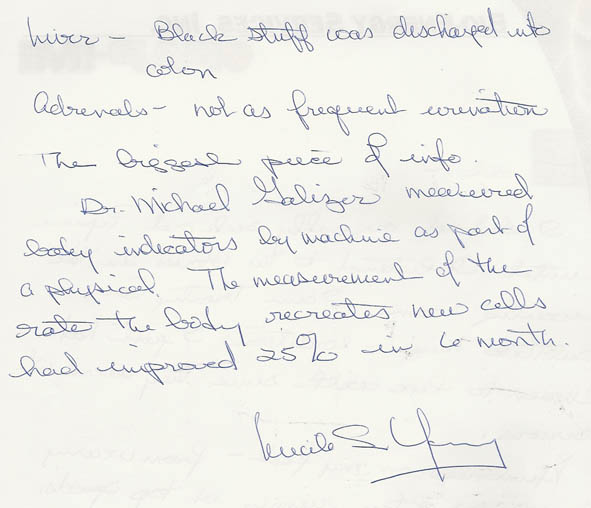 Liver - Black stuff was discharged into
colon
Adrenals - not as frequent urination
The biggest piece of info.
Dr. Michael Galizer measured
body indicators by machine as part of
a physical. The measurement of the
rate the body recreates new cells
had improved 25% in 6 month.
Lucile S